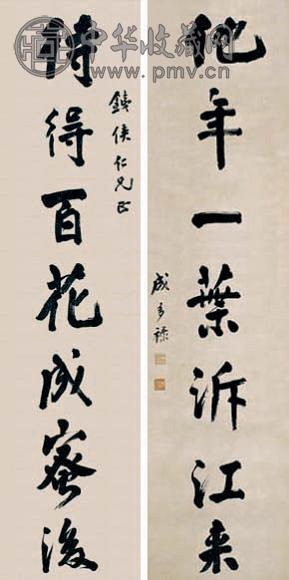 中华收藏网
www.pmv.cn
他年一葉泝江来
成多祿
待得百花成蜜後
鐵俠仁兄正